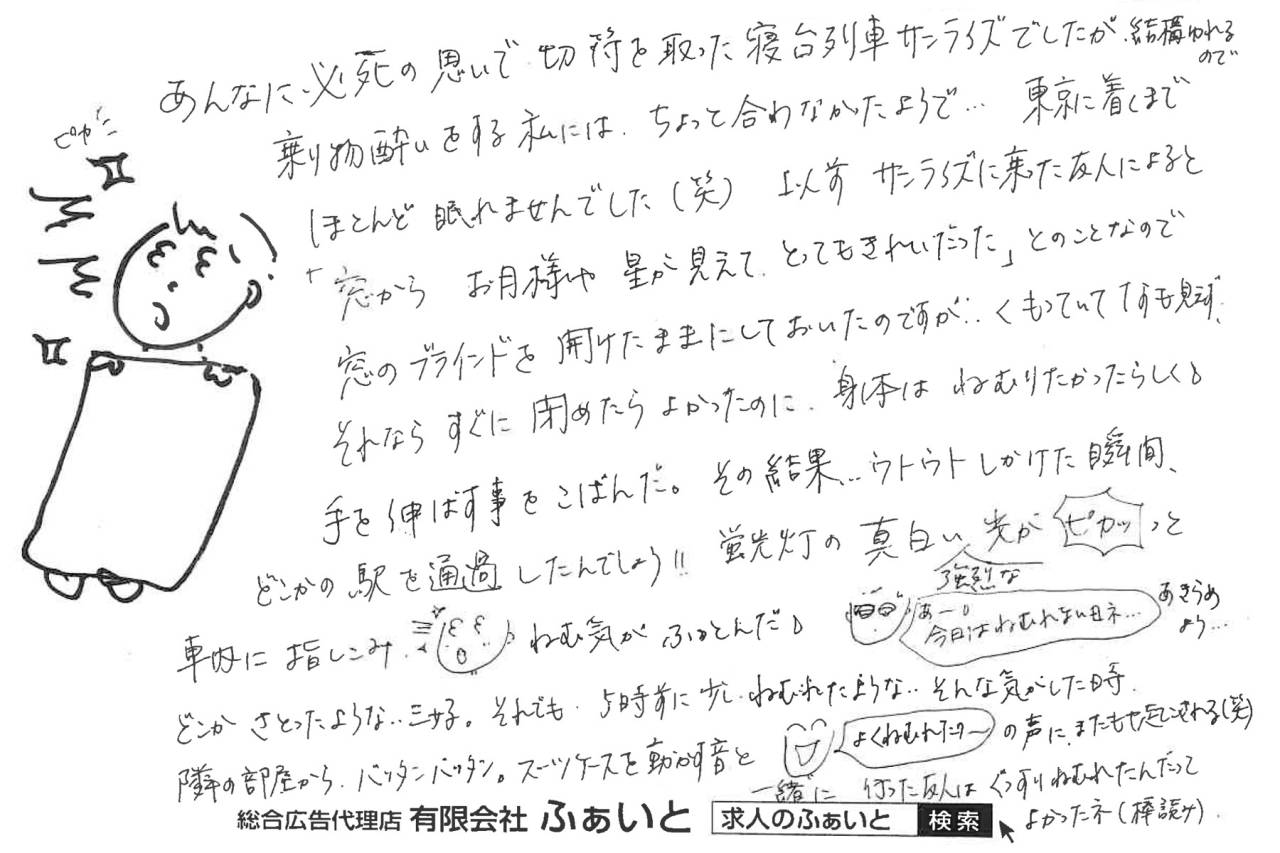 あんなに必死の思いで切符を取った寝台列車サンライズでしたが、結構ゆれる
ので
乗り物酔いをする私には、ちょっと合わなかったようで… 東京に着くまで
ピカッ
ほとんど眠れませんでした(笑) 以前サンライズに乗った友人によると
「窓からお月様や星が見えて、とってもきれいだった」とのことなので
窓のブラインドを開けたままにしておいたのですが‥くもっていて何も見えず、
それならすぐに閉めたらよかったのに、身体はねむりたかったらしく
手を伸ばす事をこばんだ。その結果…ウトウトしかけた瞬間、
どこかの駅を通過したんでしょう!!蛍光灯の真白い光がピカッっと
強烈な
車内に指しこみ、ねむ気がふっとんだ
あー。
今日はねむれない日ネ…
あきらめ
よう…
どこかさとったような‥三好。それでも、5時前に少しねむれたような‥そんな気がした時、
隣の部屋から、バッタンバッタン。スーツケースを動かす音と
よくねむれたワ〜
の声に、またも起こされる(笑)
一緒に行った友人はぐっすりねむれたんだって
よかったネ(棒読み)。
総合広告代理店 有限会社 ふぁいと 求人のふぁいと 検索